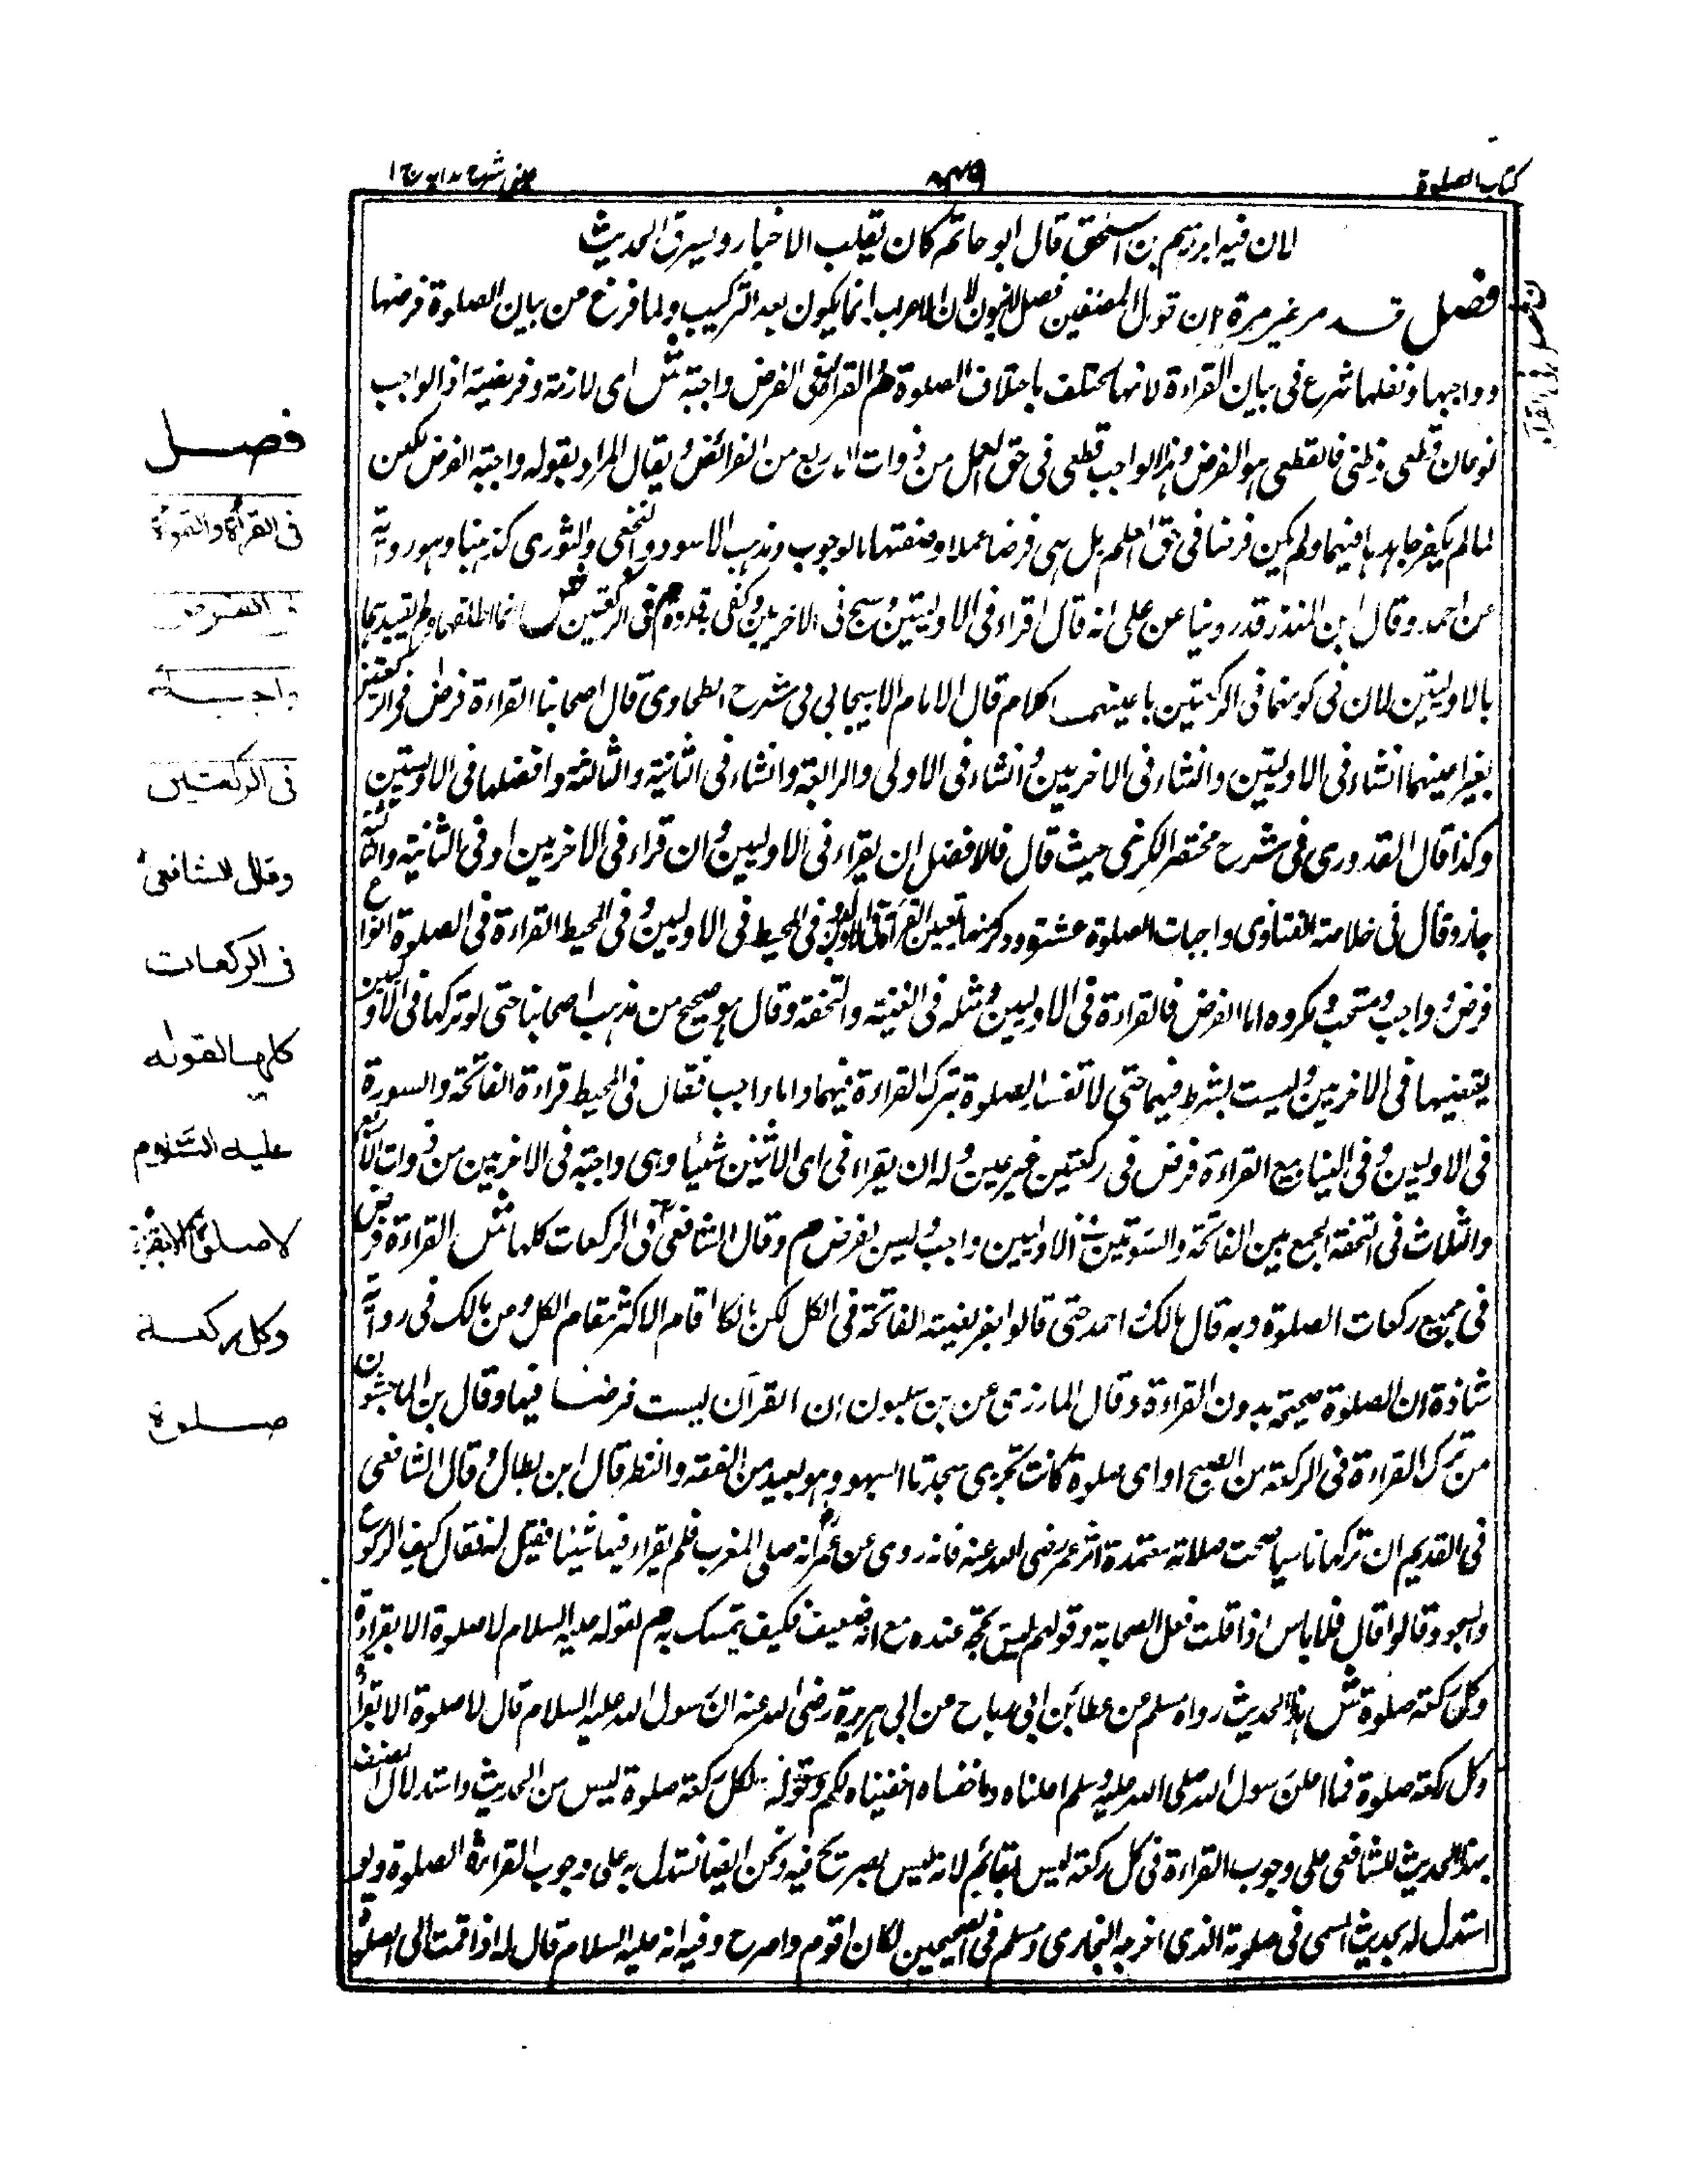 كتاب الصلوة
عينى شرح هدايه ج ١
لان فيه ابراهيم بن اسحق قال ابو حاتم كان يقلب الاخبار ويسرق الحديث
فصل قد مر غير مرة ان قول المصنفين فصل لا ينون لان الاعراب انما يكون بعد التركيب ولما فرغ من بيان الصلوة فرضها
وواجبها ونفلها شرع فى بيان القراءة لانها تختلف باختلاف الصلوة م القراءة فى الفرض واجبة ش اى لازمة وفريضية اذ الواجب
نوعان قطعى وظنى فالقطعى هو الفرض وهذا الواجب قطعى فى حق العمل من ذوات الاربع من الفرائض ويقال المراد بقوله واجبة الفرض لكن
لما لم يكفر جاحدها فيهما ولم يكن فرضا فى حق العلم بل هى فرضا عملا وصفتها بالوجوب وذهب الاسود والنخعى والثورى كذهبنا وهو رواية
عن احمد وقال ابن المنذر قد روينا عن على انه قال اقراء فى الاوليين وسبح فى الاخريين وكفى به قدوة م فى الركعتين ش انما اطلقها ولم يقيدهما
بالاوليين لان فى كونهما فى الركعتين باعينهما كلام قال الامام الاسبيجابى فى شرح الطحاوى قال اصحابنا القراءة فرض فى الركعتين
بغير اعينهما انشاء فى الاوليين وانشاء فى الاخريين وانشاء فى الاولى والرابعة وانشاء فى الثانية والثالثة وافضلها فى الاوليين
وكذا قال القدورى فى شرح مختصر الكرخى حيث قال فالافضل ان يقراء فى الاوليين وان قراء فى الاخريين او فى الثانية والثالثة
جاز وقال فى خلاصة الفتاوى واجبات الصلوة عشرة وذكر منها تعيين القراءة فى الاوليين وفى المحيط فى الاوليين وفى المحيط القراءة فى الصلوة انواع
فرض وواجب ومستحب ومكروه اما الفرض فالقراءة فى الاوليين ومثله فى الغنية والتحفة وقال هو صحيح من مذهب اصحابنا حتى لو تركها فى الاوليين
يقضيها فى الاخريين وليست بشرط فيهما حتى لا تفسد الصلوة بترك القراءة فيهما واما واجب فقال فى المحيط قراءة الفاتحة والسورة
فى الاوليين وفى الينابيع القراءة فرض فى ركعتين غير عين وله ان يقراء فى اى الاثنين شئيا وهى واجبة فى الاخريين من ذوات الاربع
والثلاث فى التحفة الجمع بين الفاتحة والسورتين فى الاوليين واجب وليس بفرض م وقال الشافعى فى الركعات كلها ش القراءة فرض
فى جميع ركعات الصلوة وبه قال مالك واحمد حتى قالوا بفريضية الفاتحة فى الكل لكن مالكا اقام الاكثر مقام الكل ومن مالك فى رواية
شاذة ان الصلوة صحيحة بدون القراءة وقال المازرى عن بن سلبون ان القرآن ليست فرضا فيها وقال بن الماجشون
من ترك القراءة فى الركعة من الصبح او اى صلوة كانت تجزى سجدتا السهو وهو بعيد من الفقه والنظر قال ابن بطال وقال الشافعى
فى القديم ان تركها ناسيا صحت صلاته معتمدة اثر عمر رضى الله عنه فانه روى عن عمر انه صلى المغرب فلم يقراء فيها شيئا فقيل له فقال كيف الركوع
والسجود قالوا قال فلا باس اذا قلت فعل الصحابة وقولهم ليس بحجة عنده مع انه ضعيف فكيف يتمسك به م لقوله عليه السلام لا صلوة الا بقراءة
وكل ركعة صلوة ش هذا الحديث رواه مسلم عن عطا بن ابى رباح عن ابى هريرة رضى الله عنه ان رسول الله عليه السلام قال لا صلوة الا بقراءة
وكل ركعة صلوة فما اعلن رسول الله صلى الله عليه وسلم اعلناه وما اخفاه اخفيناه لكم وقوله لكل ركعة صلوة ليس من الحديث واستدلال المصنف
بهذا الحديث للشافعى على وجوب القراءة فى كل ركعة ليس بقائم لانه ليس بصريح فيه ونحن ايضا نستدل به على وجوب القراءة الصلوة ولو
استدل له بحديث المسى فى صلوته الذى اخرجه البخارى ومسلم فى الصحيحين لكان اقوم واصرح وفيه انه عليه السلام قال له اذا قمت الى الصلوة
فصل
فى القرأة والقرأة
فى الفرض
واجبة
فى الركعتين
وقال الشافعى
فى الركعات
كلها لقوله
عليه السلام
لا صلوة الا بقراءة
وكل ركعة
صلوة